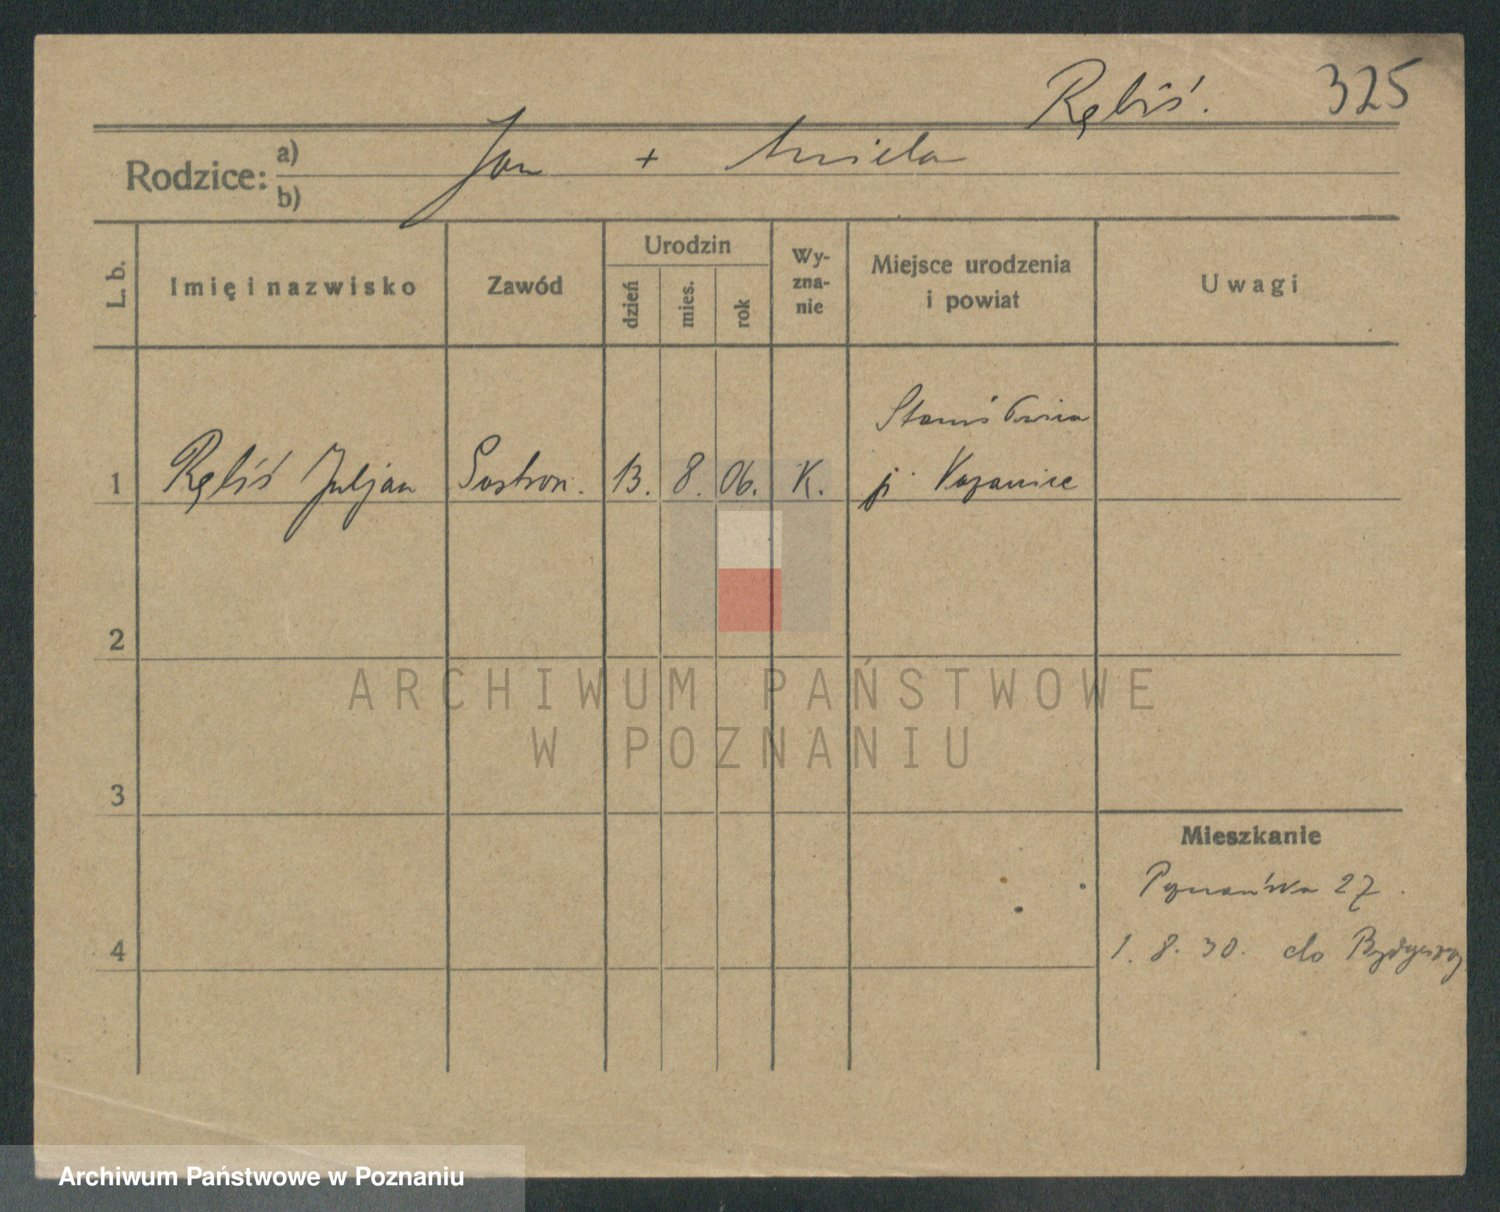 325
Rębiś.
Rodzice: a) b)
Jan + Aniela
L. b.
Imię i nazwisko
Zawód
Urodzin
dzień
mies.
rok
Wy-
zna-
nie
Miejsce urodzenia
i powiat
Uwagi
1 Rębiś Juljan 13. 8. 06. K.
2
3
4
Mieszkanie
Poznańska 27.
1. 8. 30. do Bydgoszcz
ARCHIWUM PAŃSTWOWE
W POZNANIU
Archiwum Państwowe w Poznaniu